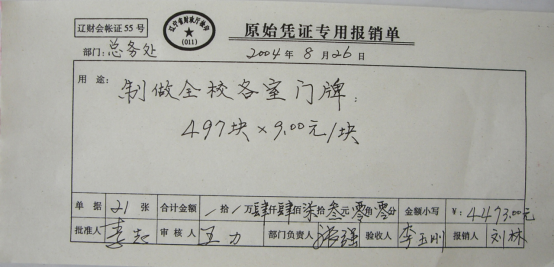 辽财会帐证55号
辽宁省财政厅监制
(011)
原始凭证专用报销单
部门:总务处 2004年8月26日
用途:制做全校各室门牌:
497块×9.00元/块
单据 21 张 合计金额 / 拾 / 万肆仟肆佰柒拾叁元零角零分 金额小写 ¥:4473.00元
批准人 李起 审核人 王力 部门负责人 张强 验收人 李玉刚 报销人 刘林